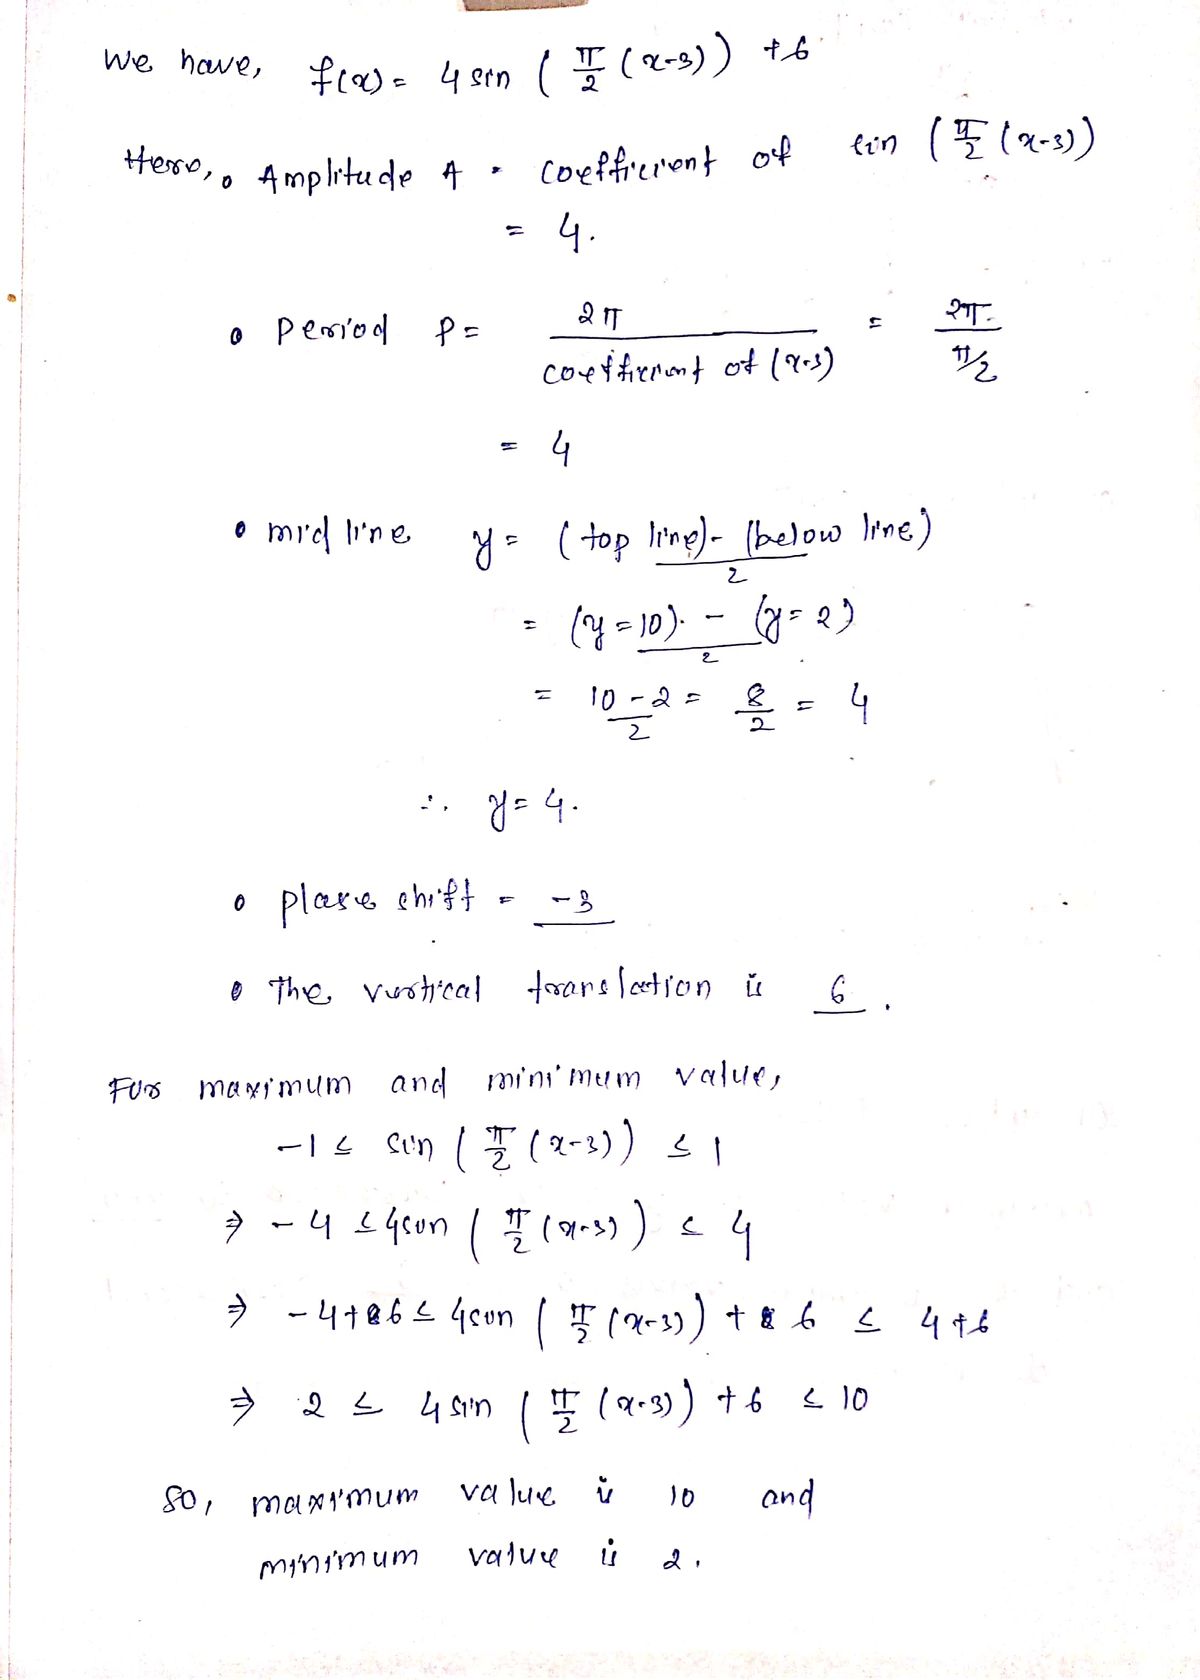 We have, f(x) = 4 sin ( π/2 (x-3)) + 6
Here, o Amplitude A = coefficient of sin ( π/2 (x-3))
= 4.
o Period P = 2π / coefficient of (x-3) = 2π / π/2
= 4
o mid line y = (top line) - (below line) / 2
= (y = 10) - (y = 2) / 2
= 10 - 2 / 2 = 8/2 = 4
∴ y = 4.
o phase shift = -3
o The vertical translation is 6.
For maximum and minimum value,
-1 ≤ sin ( π/2 (x-3)) ≤ 1
⇒ -4 ≤ 4 sin ( π/2 (x-3)) ≤ 4
⇒ -4+6 ≤ 4 sin ( π/2 (x-3)) + 6 ≤ 4+6
⇒ 2 ≤ 4 sin ( π/2 (x-3)) + 6 ≤ 10
So, maximum value is 10 and
minimum value is 2.